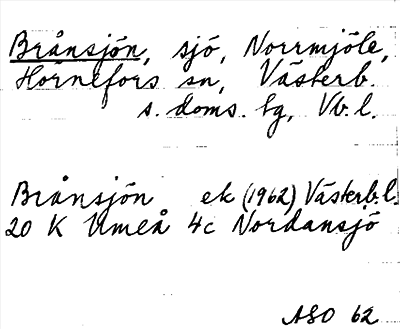 Brånsjön, sjö, Norrmjöle,
Hörnefors sn, Västerb.
s. doms. lg, Vb. l.
Brånsjön ek (1962) Västerb. l.
20 K Umeå 4c Nordansjö
ASO 62